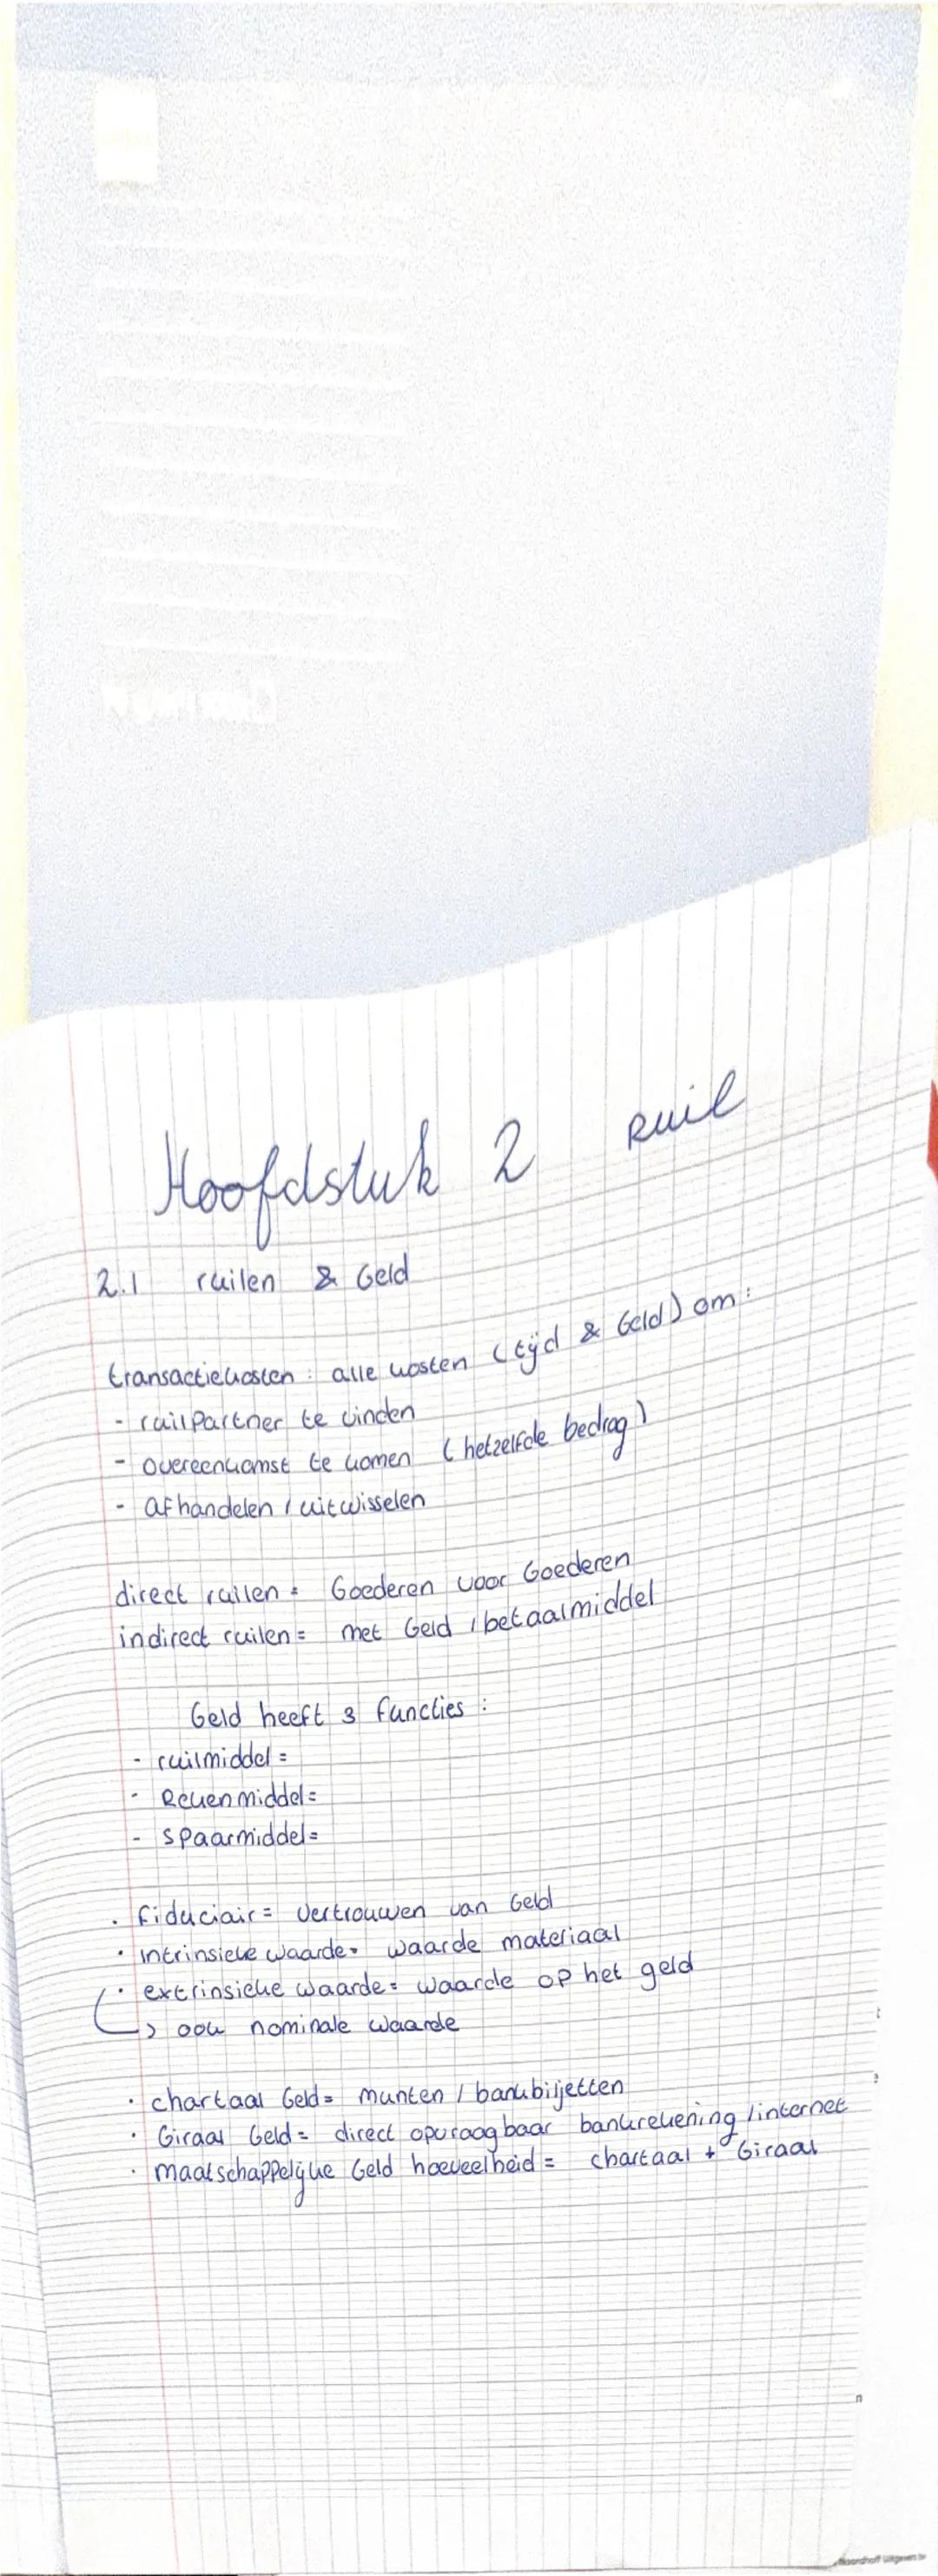 Hoofdstuk 2 ruil
2.1 ruilen & Geld
transactiekosten: alle kosten (tijd & Geld) om:
- ruilpartner te vinden
- overeenkomst te komen (hetzelfde bedrag)
- afhandelen / uitwisselen
direct ruilen = Goederen voor Goederen
indirect ruilen = met Geld / betaalmiddel
Geld heeft 3 functies:
- ruilmiddel =
- Rekenmiddel =
- spaarmiddel =
· fiduciair = vertrouwen van Geld
· intrinsieke waarde = waarde materiaal
· extrinsieke waarde = waarde op het geld
↳ ook nominale waarde
· chartaal Geld = munten / bankbiljetten
· Giraal Geld = direct opvraagbaar bankrekening / internet
· maatschappelijke Geld hoeveelheid = chartaal + Giraal
Noordhoff Uitgevers bv